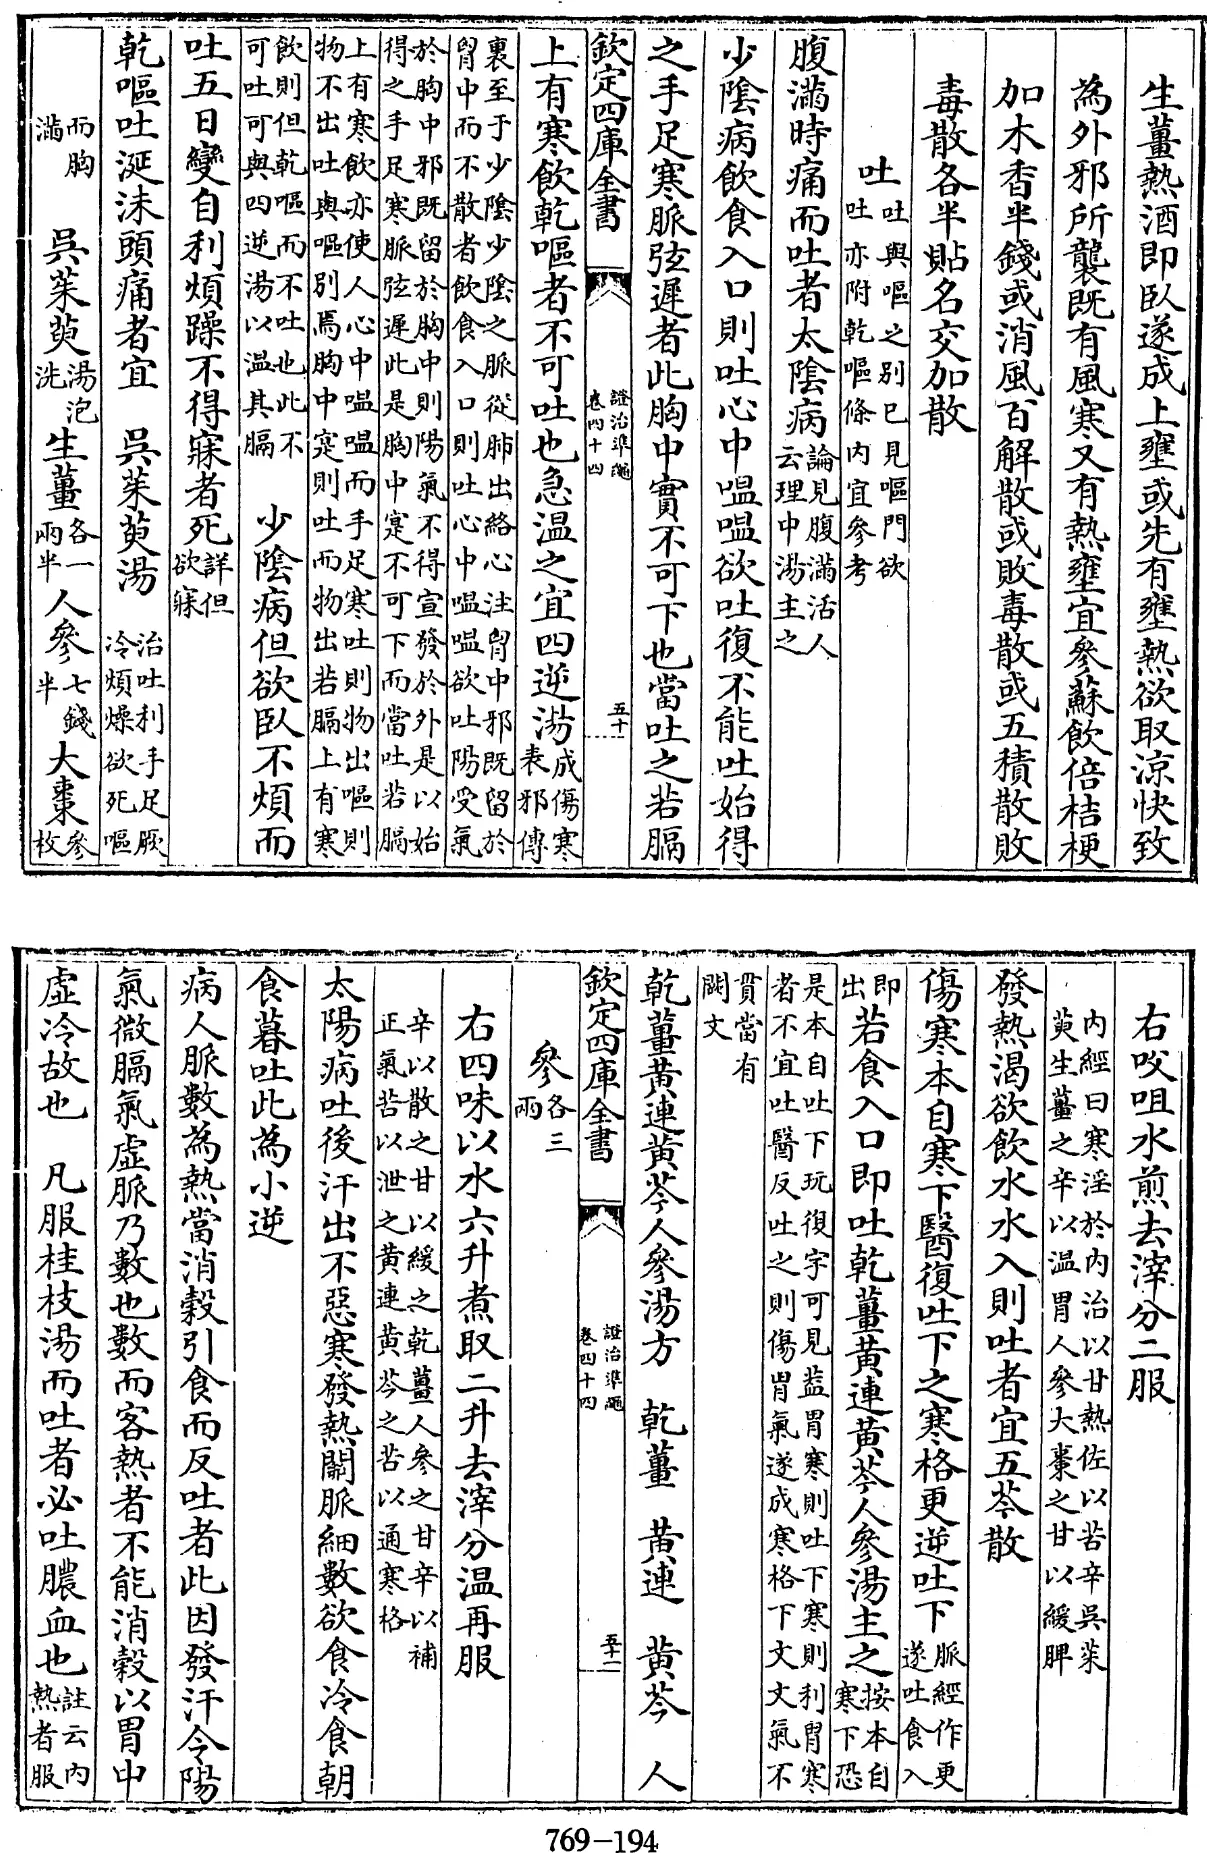 生薑熱酒即臥遂成上壅或先有壅熱欲取涼快致
為外邪所襲既有風寒又有熱壅宜參蘇飲倍桔梗
加木香半錢或消風百解散或敗毒散或五積散敗
毒散各半貼名交加散
吐 吐與嘔之别已見嘔門欲
吐亦附乾嘔條内宜參考
腹滿時痛而吐者太陰病 論見腹滿活人
云理中湯主之
少陰病飲食入口則吐心中嗢嗢欲吐復不能吐始得
之手足寒脈弦遲者此胸中實不可下也當吐之若膈
欽定四庫全書
證治準繩
卷四十四
五十
上有寒飲乾嘔者不可吐也急温之宜四逆湯 成傷寒
表邪傳
裏至于少陰少陰之脈從肺出絡心注胷中邪既留於
胷中而不散者飲食入口則吐心中嗢嗢欲吐陽受氣
於胸中邪既留於胸中則陽氣不得宣發於外是以始
得之手足寒脈弦遲此是胸中寔不可下而當吐若膈
上有寒飲亦使人心中嗢嗢而手足寒吐則物出嘔則
物不出吐與嘔别焉胸中寔則吐而物出若膈上有寒
飲則但乾嘔而不吐也此不
可吐可與四逆湯以温其膈 少陰病但欲臥不煩而
吐五日變自利煩躁不得寐者死 詳但
欲寐
乾嘔吐涎沫頭痛者宜 吳茱萸湯 治吐利手足厥
冷煩燥欲死嘔
而胸
滿 吳茱萸 湯泡
洗 生薑 各一
兩半 人參 七錢
半 大棗 參
枚
右㕮咀水煎去滓分二服
内經曰寒淫於内治以甘熱佐以苦辛吳茱
萸生薑之辛以温胃人參大棗之甘以緩脾
發熱渴欲飲水水入則吐者宜五苓散
傷寒本自寒下醫復吐下之寒格更逆吐下 脈經作更
遂吐食入
即
出 若食入口即吐乾薑黄連黄芩人參湯主之 按本自
寒下恐
是本自吐下玩復字可見盖胃寒則吐下寒則利胃寒
者不宜吐醫反吐之則傷胷氣遂成寒格下文文氣不
貫當有
闕文
乾薑黄連黄芩人參湯方 乾薑 黄連 黄芩 人
欽定四庫全書
證治準繩
卷四十四
五十一
參 各三
兩
右四味以水六升煮取二升去滓分温再服
辛以散之甘以緩之乾薑人參之甘辛以補
正氣苦以泄之黄連黄芩之苦以通寒格
太陽病吐後汗出不惡寒發熱關脈細數欲食冷食朝
食暮吐此為小逆
病人脈數為熱當消穀引食而反吐者此因發汗令陽
氣微膈氣虛脈乃數也數而客熱者不能消穀以胃中
虛冷故也 凡服桂枝湯而吐者必吐膿血也 註云内
熱者服
769-194